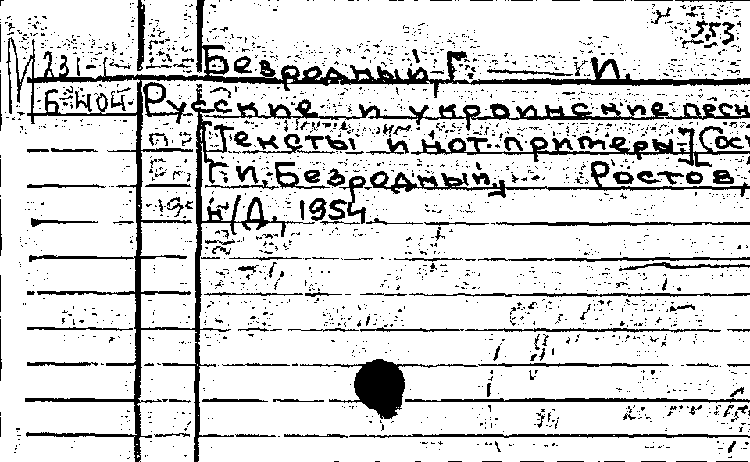 353
231-1 Безродный, Г. И.
Б-404. Русские и украинские песн
[Тексты и нот. примеры.] [Сос
Г.И. Безродный, Ростов,
н/Д., 1954.